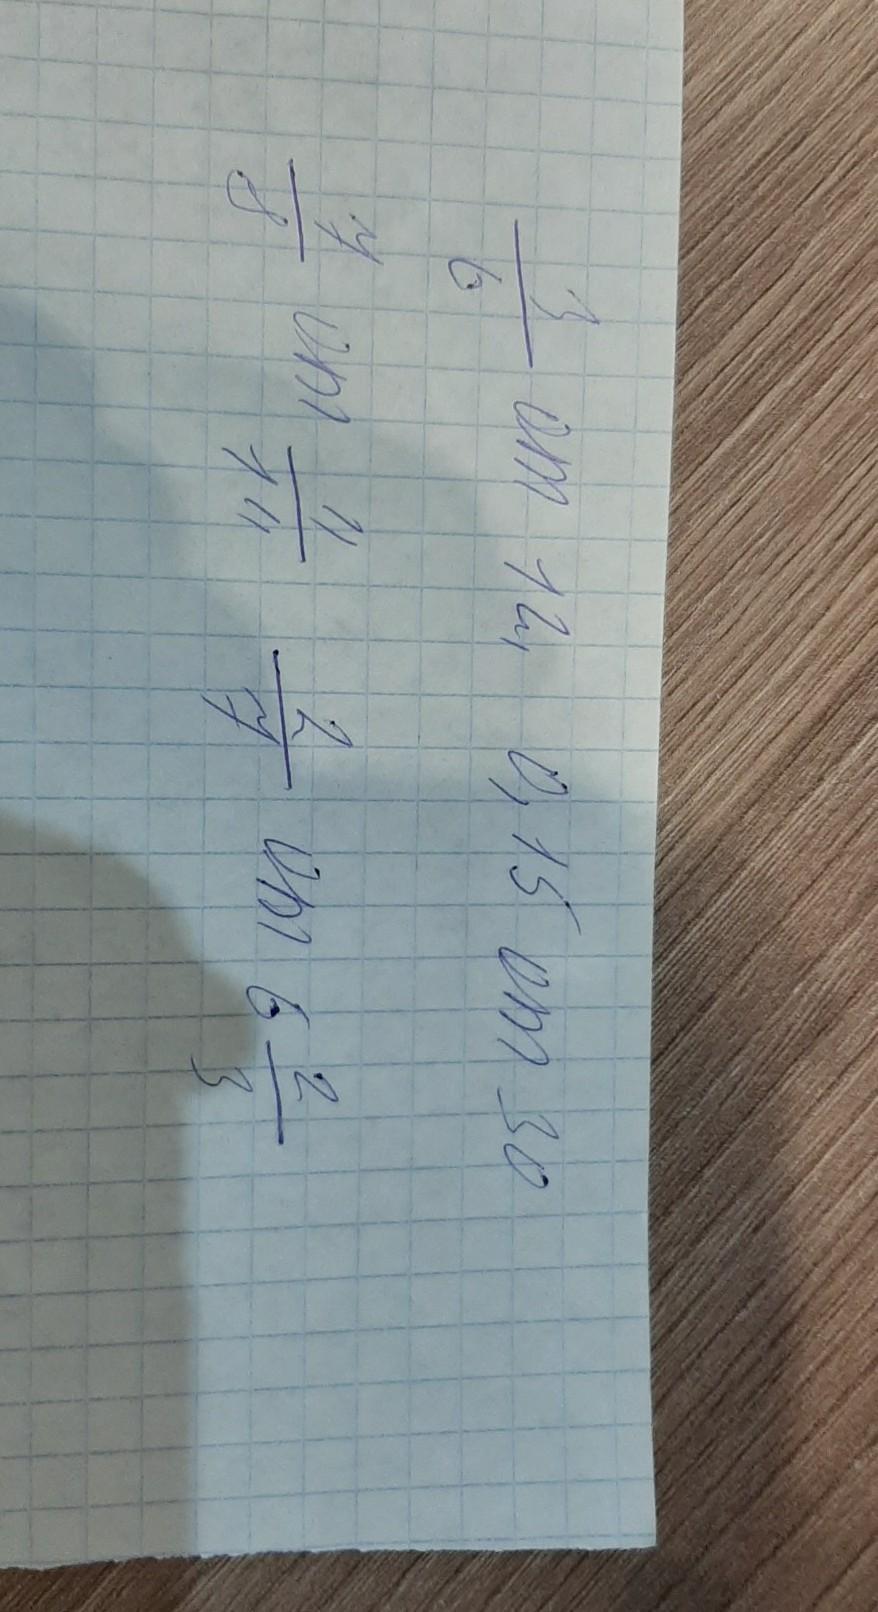 1/6 от 12, 0,15 от 30
7/8 от 4/14 2/7 от 6 2/3